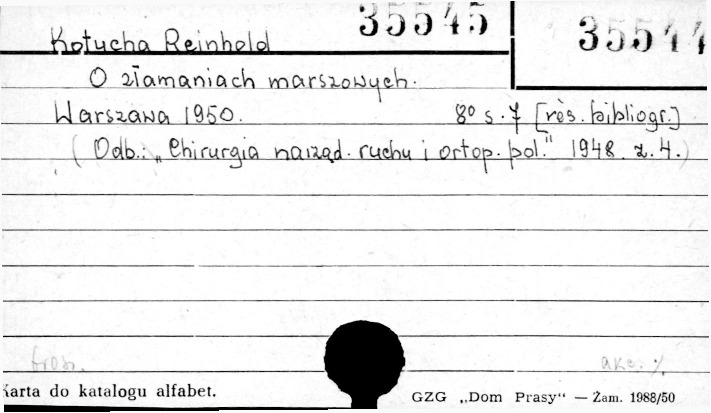 35545
35544
Kotucha Reinhold
O złamaniach marszowych.
Warszawa 1950. 8° s. 7 [rés. bibliogr.]
(Odb.: „Chirurgia narząd. ruchu i ortop. pol." 1948. z. 4.)
brosz.
akc. %
Karta do katalogu alfabet.
GZG „Dom Prasy“ — Zam. 1988/50